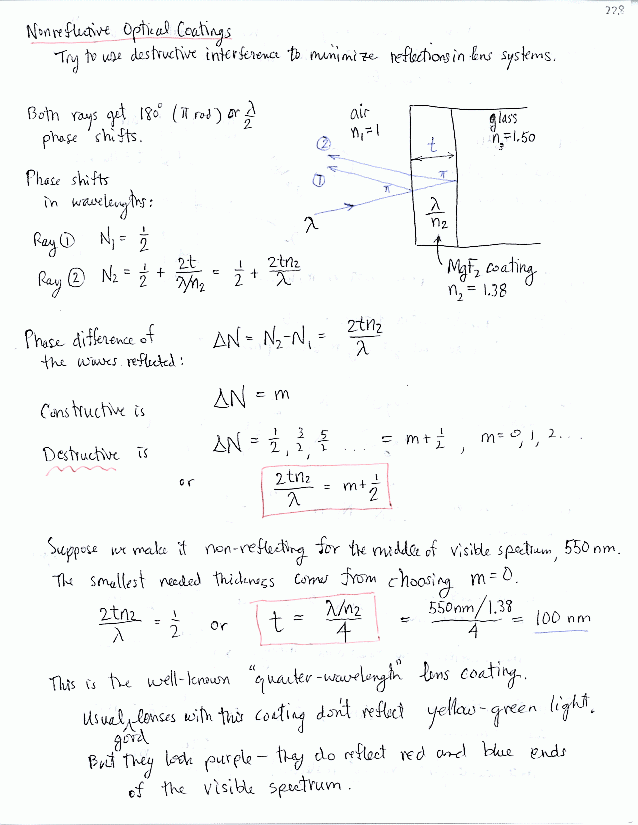 228
Nonreflective Optical Coatings
Try to use destructive interference to minimize reflections in lens systems.
Both rays get 180° (π rad) or λ/2
phase shifts.
air
n₁=1
glass
n₃=1.50
②
①
t
π
π
λ
λ/n₂
MgF₂ coating
n₂ = 1.38
Phase shifts
in wavelengths:
Ray ① N₁ = 1/2
Ray ② N₂ = 1/2 + 2t/(λ/n₂) = 1/2 + 2tn₂/λ
Phase difference of
the waves reflected:
ΔN = N₂-N₁ = 2tn₂/λ
Constructive is ΔN = m
Destructive is ΔN = 1/2, 3/2, 5/2 ... = m+1/2, m=0,1,2...
or 2tn₂/λ = m+1/2
Suppose we make it non-reflecting for the middle of visible spectrum, 550 nm.
The smallest needed thickness comes from choosing m=0.
2tn₂/λ = 1/2 or t = (λ/n₂)/4 = (550nm/1.38)/4 = 100 nm
This is the well-known "quarter-wavelength" lens coating.
Usual, good lenses with this coating don't reflect yellow-green light.
But they look purple – they do reflect red and blue ends
of the visible spectrum.